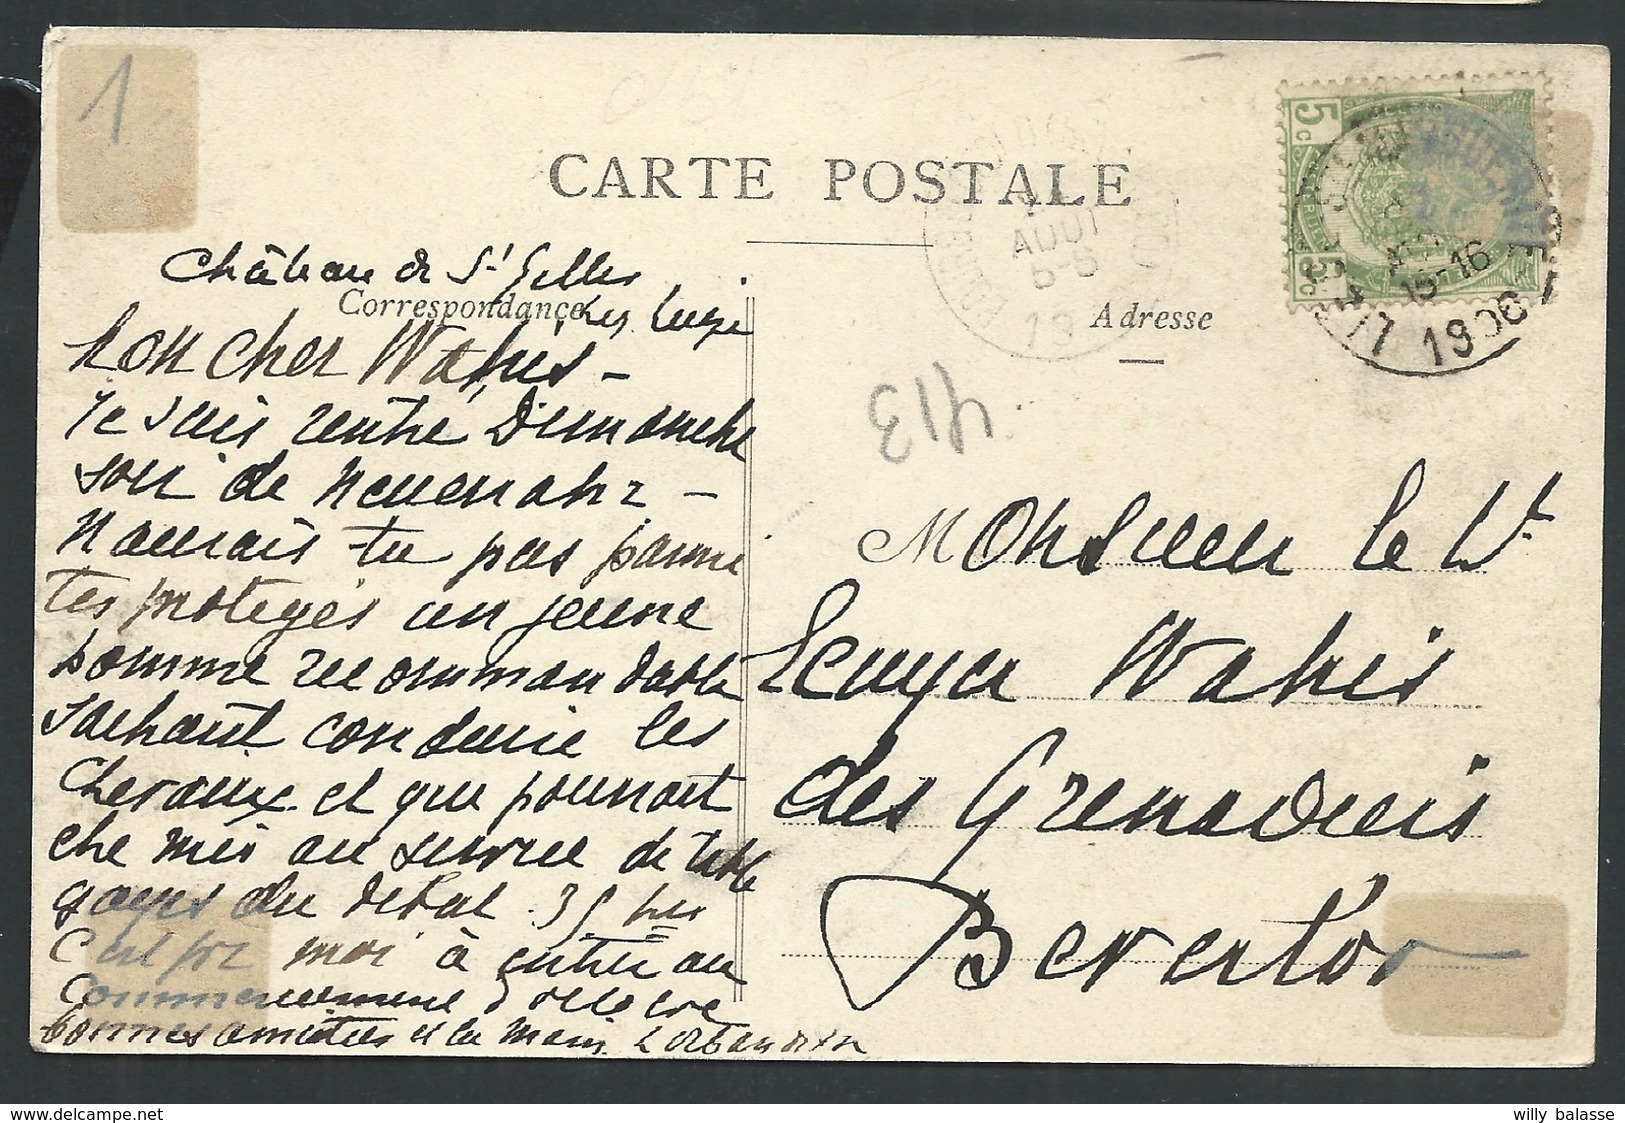 1
CARTE POSTALE
Château de St Gilles
Correspondance
lez Liége
Adresse
5 c
5 c
AOUT
5-6
19
15-16
1906
413
Mon cher Wahis -
Je suis rentré Dimanche
soir de Neuenahr -
N'aurais-tu pas parmi
tes protégés un jeune
homme recommandable
sachant conduire les
chevaux et qui pourrait
être mis au service de table
gages du début 35 frs
C'est pr moi à entrer au
commencement d'octobre
bonnes amitiés et la main
Monsieur le Vt
Ecuyer Wahis
des Grenadiers
Beverloo
willy balasse